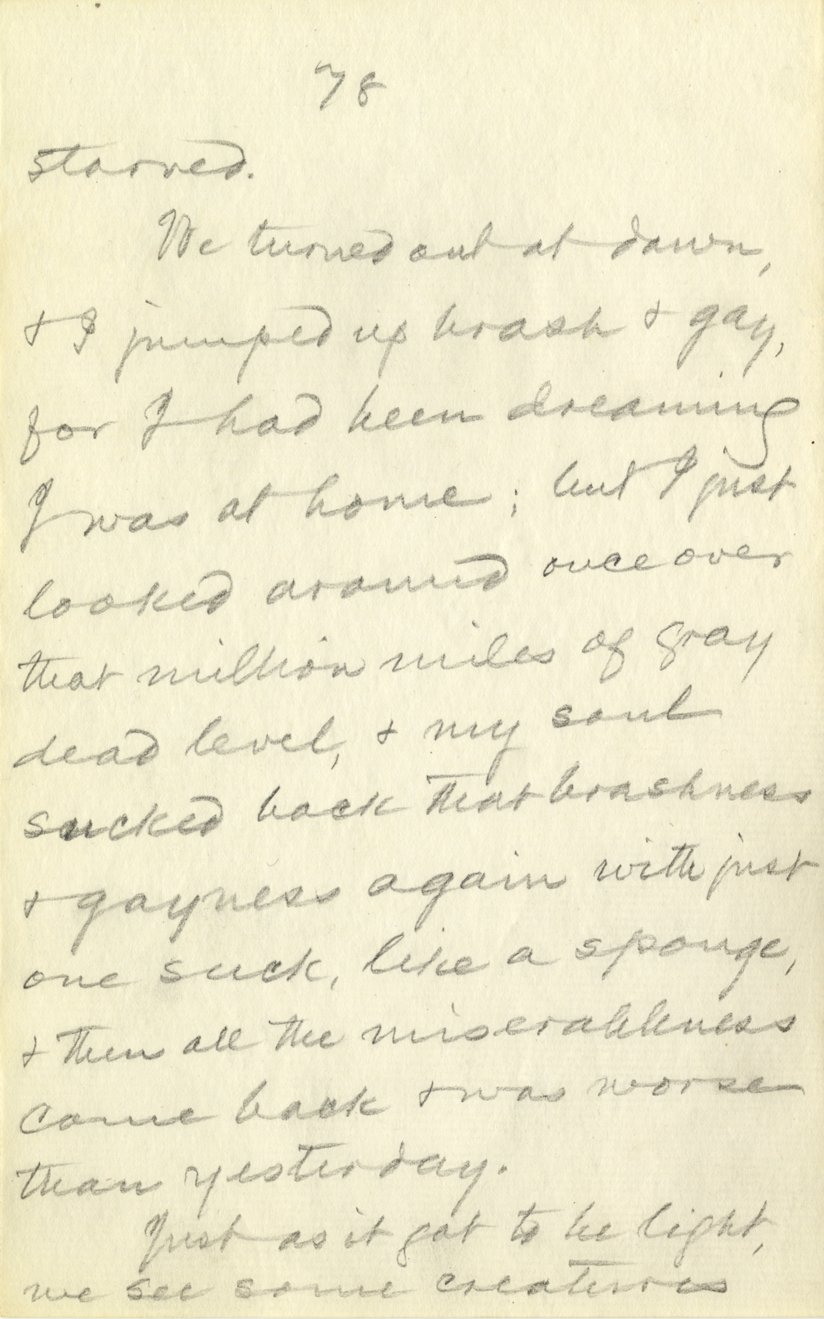 78
starved.
We turned out at dawn,
& I jumped up brash & gay,
for I had been dreaming
I was at home; but I just
looked around once over
that million miles of gray
dead level, & my soul
sucked back that brashness
& gayness again with just
one suck, like a sponge,
& then all the miserableness
come back & was worse
than yesterday.
Just as it got to be light,
we see some creatures